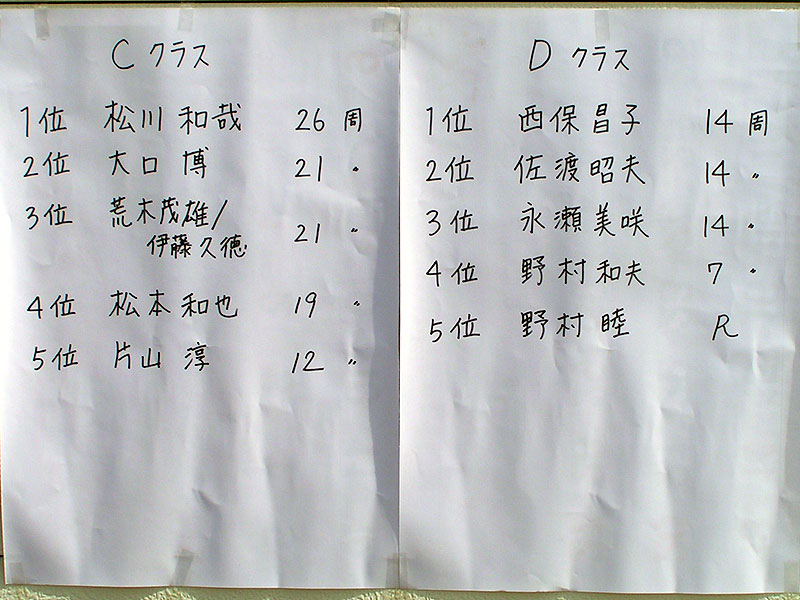 Cクラス
1位 松川 和哉 26 周
2位 大口 博 21 〃
3位 荒木茂雄/
伊藤久徳 21 〃
4位 松本和也 19 〃
5位 片山 淳 12 〃
D クラス
1位 西保昌子 14 周
2位 佐渡昭夫 14 〃
3位 永瀬美咲 14 〃
4位 野村和夫 7 〃
5位 野村 睦 R